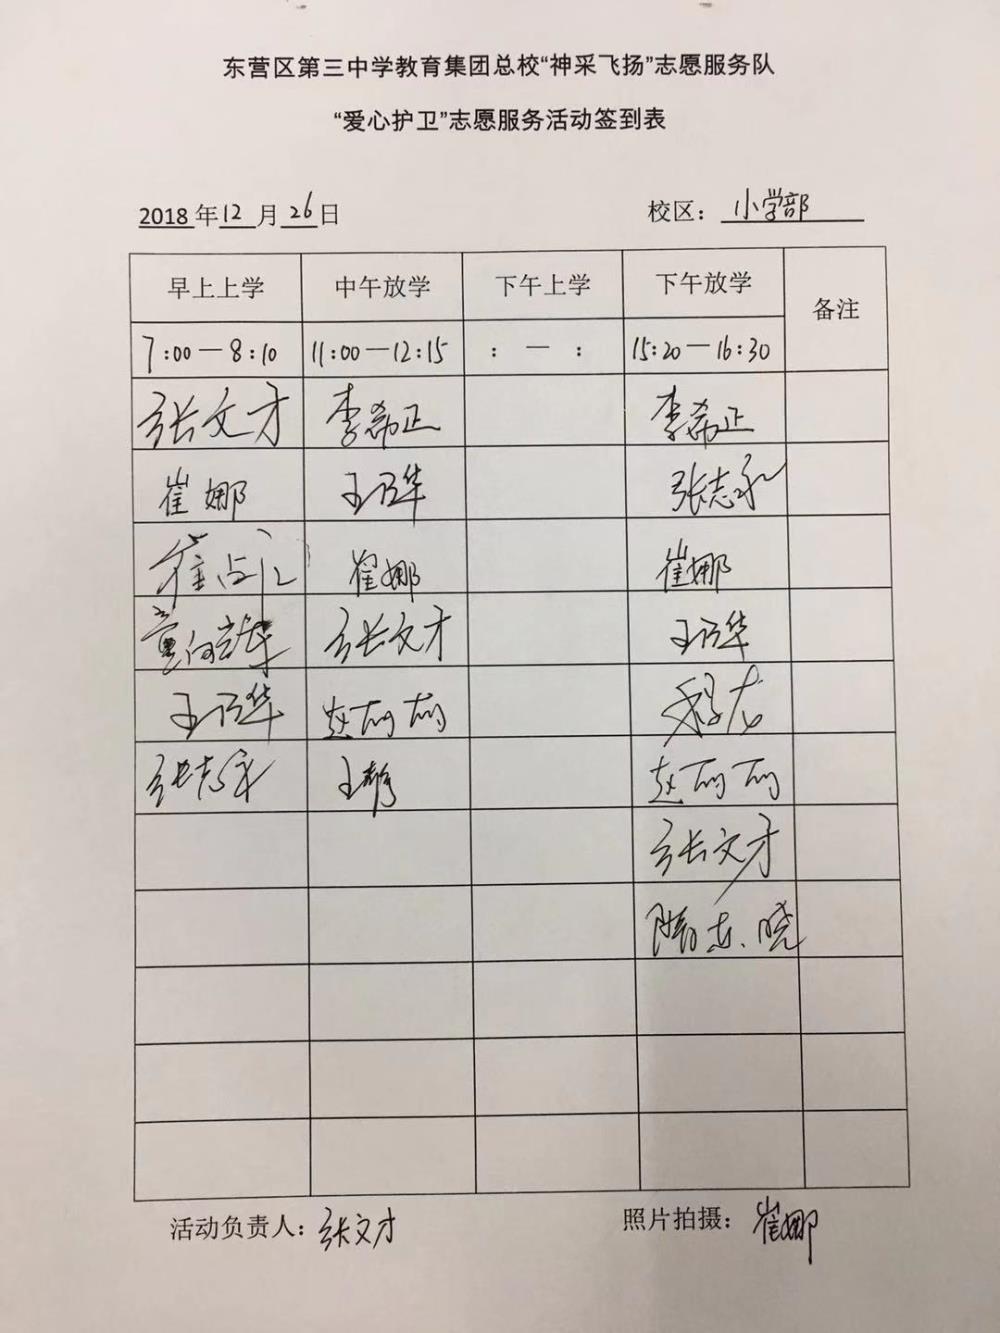 东营区第三中学教育集团总校“神采飞扬”志愿服务队
“爱心护卫”志愿服务活动签到表
2018年12月26日 校区：小学部
早上上学 中午放学 下午上学 下午放学 备注
7:00—8:10 11:00—12:15 : — : 15:20—16:30
张文才 李希正 李希正
崔娜 王乃华 张志永
崔娜 崔娜
董 张文才 王乃华
王乃华 赵丽丽 程龙
张志永 王静 赵丽丽
张文才
隋志晓
活动负责人：张文才 照片拍摄：崔娜